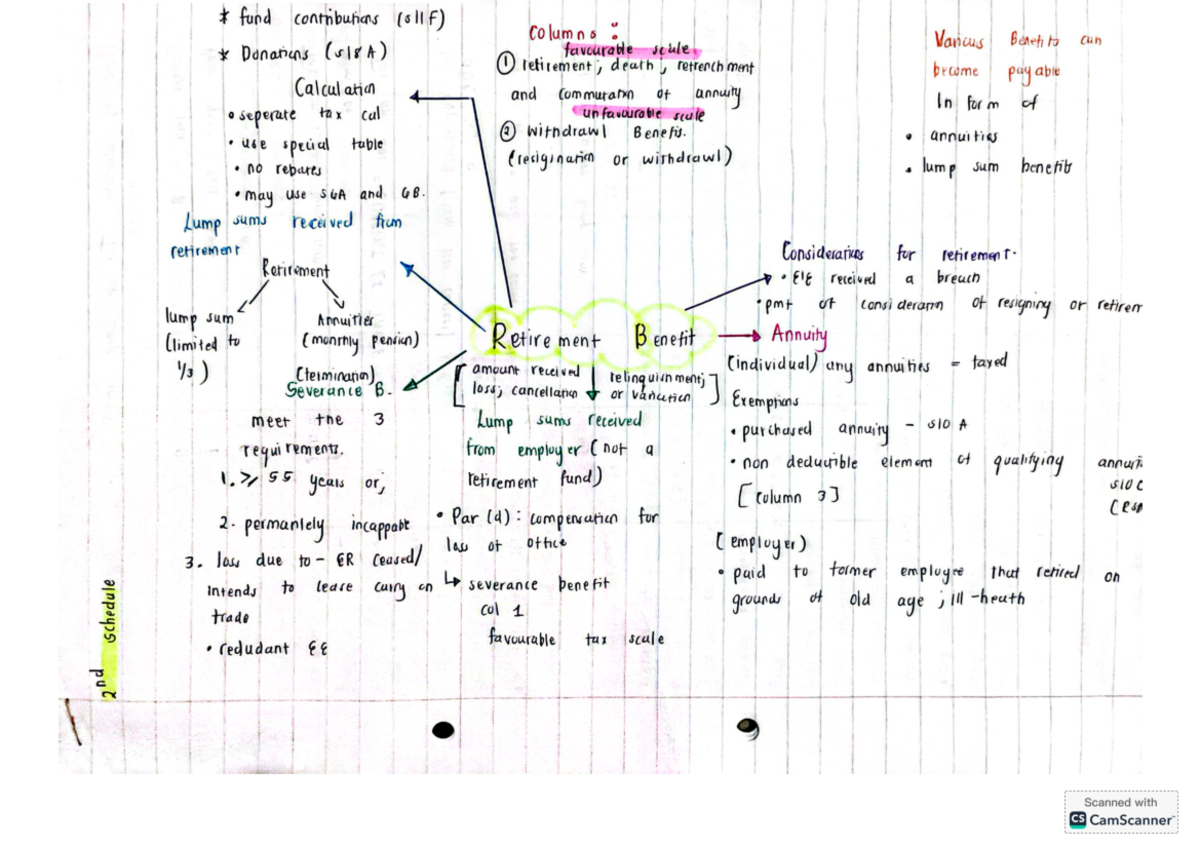 * fund contributions (s11F)
* Donations (s18A)
Calculation
• seperate tax cal
• use special table
• no rebates
• may use S6A and 6B.
Columns :
favourable scale
① retirement, death, retrenchment
and commutation of annuity
unfavourable scale
② withdrawl Benefit.
(resignation or withdrawl)
Various Benefits can
become payable
In form of
• annuities
• lump sum benefits
Lump sums received from
retirement
Retirement
lump sum
(limited to
1/3)
Annuities
(monthly pension)
Retirement Benefit
Considerations for retirement.
• received a breach
• pmt of consideration of resigning or retirem
Annuity
(individual) any annuities = taxed
Exemptions
• purchased annuity - S10 A
• non deductible element of qualifying annuit
S10C
[column 3]
(employer)
• paid to former employee that retired on
grounds of old age ; ill-heath
(termination)
Severance B.
meet the 3
requirements.
1. ≥ 55 years or,
2. permantely incappable
3. loss due to - ER ceased/
intends to lease carry on
trade
• redudant EE
[amount received relinquishment;
loss; cancellation or variation]
Lump sums received
from employer (not a
retirement fund)
• Par (d) : compensation for
loss of office
↳ severance benefit
col 1
favourable tax scale
2nd schedule
Scanned with
CS CamScanner